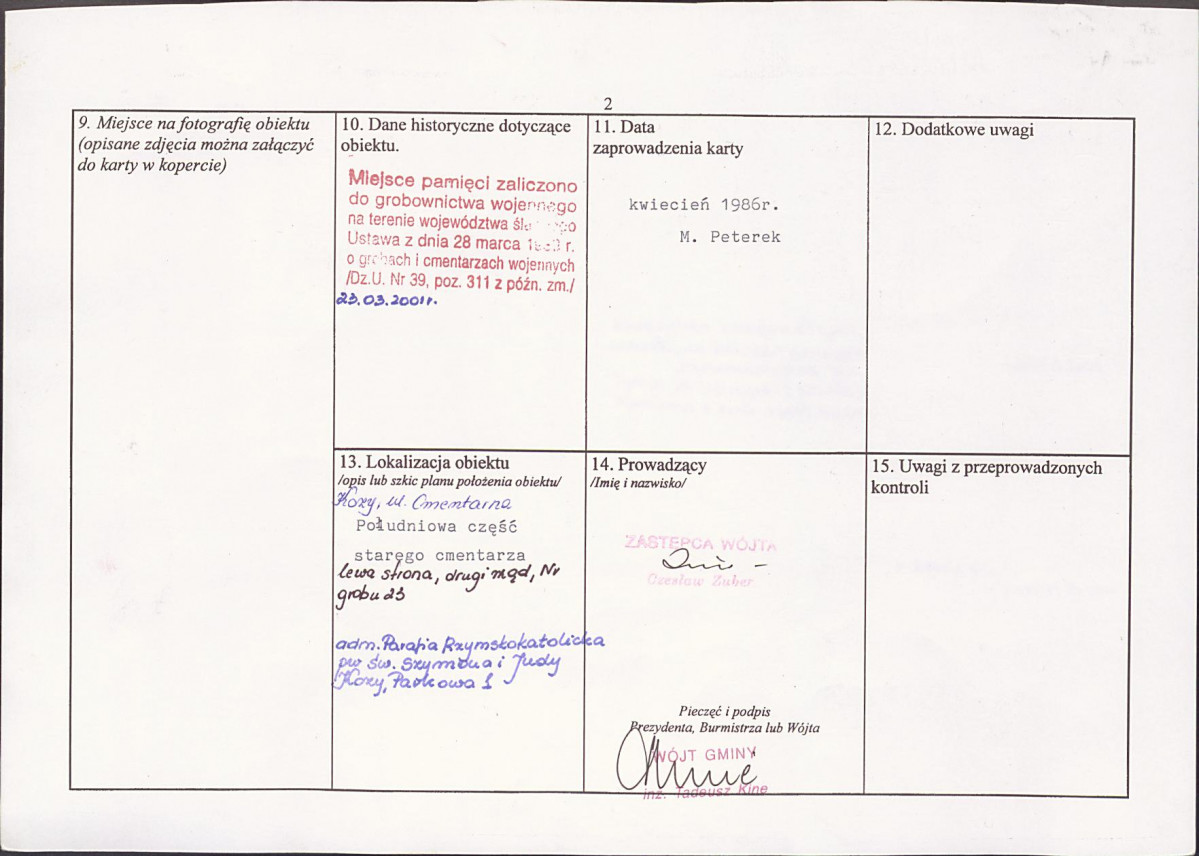 2
9. Miejsce na fotografię obiektu
(opisane zdjęcia można załączyć
do karty w kopercie)
10. Dane historyczne dotyczące
obiektu.
Miejsce pamięci zaliczono
do grobownictwa wojennego
na terenie województwa
Ustawa z dnia 28 marca r.
o grobach i cmentarzach wojennych
/Dz.U. Nr 39, poz. 311 z późn. zm./
23.03.2001r.
11. Data
zaprowadzenia karty
kwiecień 1986r.
M. Peterek
12. Dodatkowe uwagi
13. Lokalizacja obiektu
/opis lub szkic planu położenia obiektu/
Kozy, ul. Cmentarna
Południowa część
starego cmentarza
lewa strona, drugi rząd, Nr
grobu 23
adm. Parafia Rzymskokatolicka
pw św. Szymona i Judy
Kozy, Parkowa 1
14. Prowadzący
/Imię i nazwisko/
ZASTĘPCA WÓJTA
Czesław Zuber
Pieczęć i podpis
Prezydenta, Burmistrza lub Wójta
WÓJT GMINY
inż. Tadeusz Kine
15. Uwagi z przeprowadzonych
kontroli